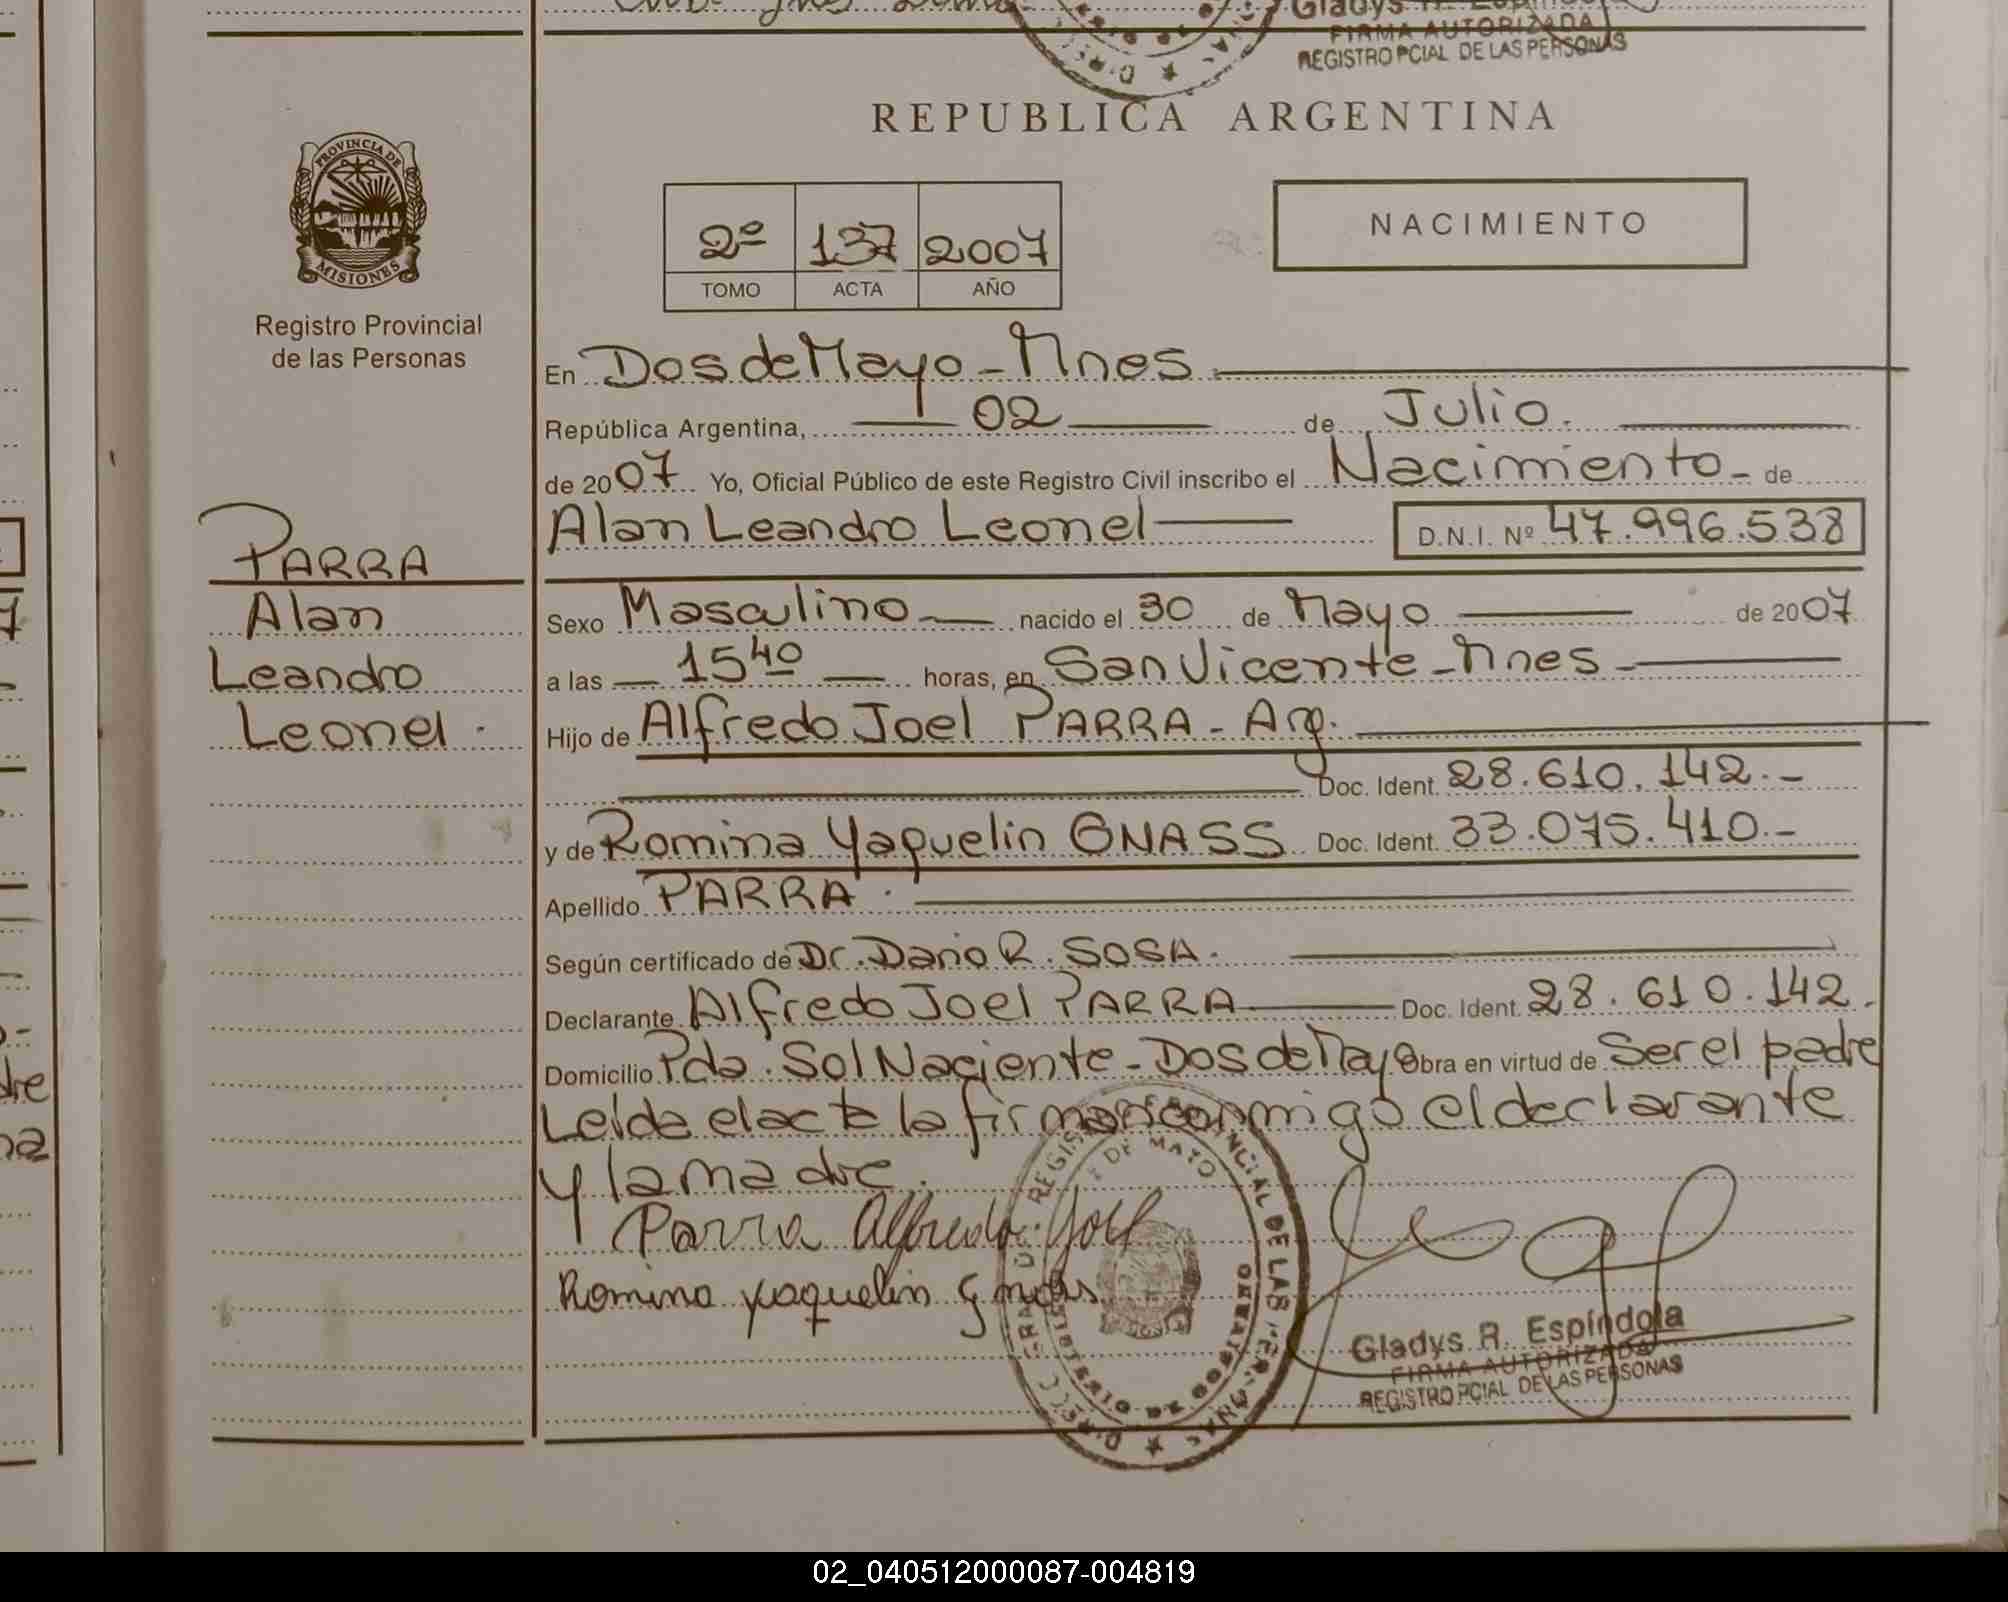 FIRMA AUTORIZADA
REGISTRO PCIAL DE LAS PERSONAS
REPUBLICA ARGENTINA
PROVINCIA DE
MISIONES
Registro Provincial
de las Personas
2º 137 2007
TOMO ACTA AÑO
NACIMIENTO
En Dos de Mayo - Mnes
República Argentina, 02 de Julio.
de 2007 Yo, Oficial Público de este Registro Civil inscribo el Nacimiento - de
Alan Leandro Leonel D.N.I. Nº 47.996.538
PARRA
Alan
Leandro
Leonel.
Sexo Masculino nacido el 30 de Mayo de 2007
a las 15 40 horas, en San Vicente - Mnes -
Hijo de Alfredo Joel PARRA - Arg.
Doc. Ident. 28.610.142.-
y de Romina Yaquelin GNASS Doc. Ident. 33.075.410.-
Apellido PARRA.
Según certificado de Dr. Dario R. SOSA.
Declarante Alfredo Joel PARRA Doc. Ident. 28.610.142.
Domicilio Pda. Sol Naciente - Dos de Mayo Obra en virtud de Ser el padre
Leida el acta la firman conmigo el declarante
y la madre.
Parra Alfredo Joel
Romina yaquelin gnass
Gladys R. Espíndola
FIRMA AUTORIZADA
REGISTRO PCIAL DE LAS PERSONAS
02_040512000087-004819